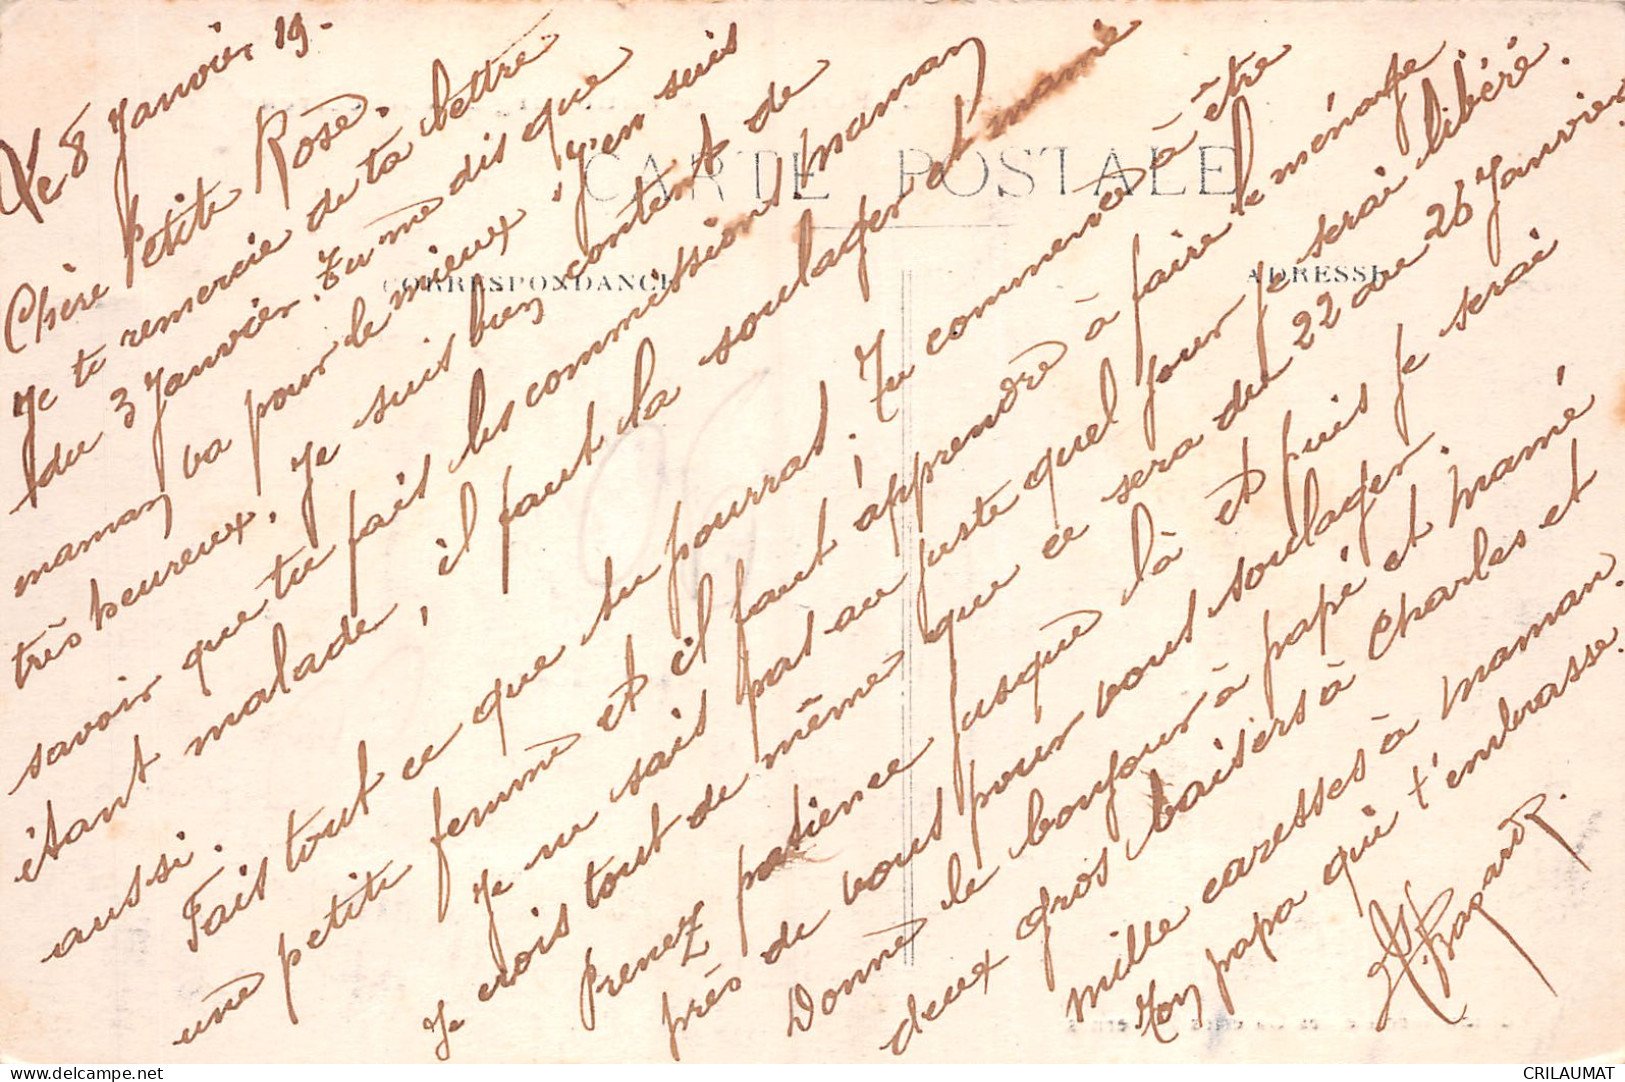 Le 8 Janvier 19.
Chère Petite Rose.
Je te remercie de ta lettre
du 3 Janvier. Tu me dis que
maman va pour le mieux, j'en suis
très heureux. Je suis bien content de
savoir que tu fais les commissions, maman
étant malade, il faut la soulager et mamé
aussi.
Fais tout ce que tu pourras. Tu commence à être
une petite femme et il faut apprendre à faire le ménage
Je ne sais pas au juste quel jour je serai libéré.
Je crois tout de même que ce sera du 22 au 26 Janvier
Prenez patience jusque là et puis je serai
près de vous pour vous soulager.
Donne le bonjour à papé et mamé
deux gros baisers à Charles et
mille caresses à maman.
Ton papa qui t'embrasse.
CARTE POSTALE
CORRESPONDANCE
ADRESSE
CRILAUMAT